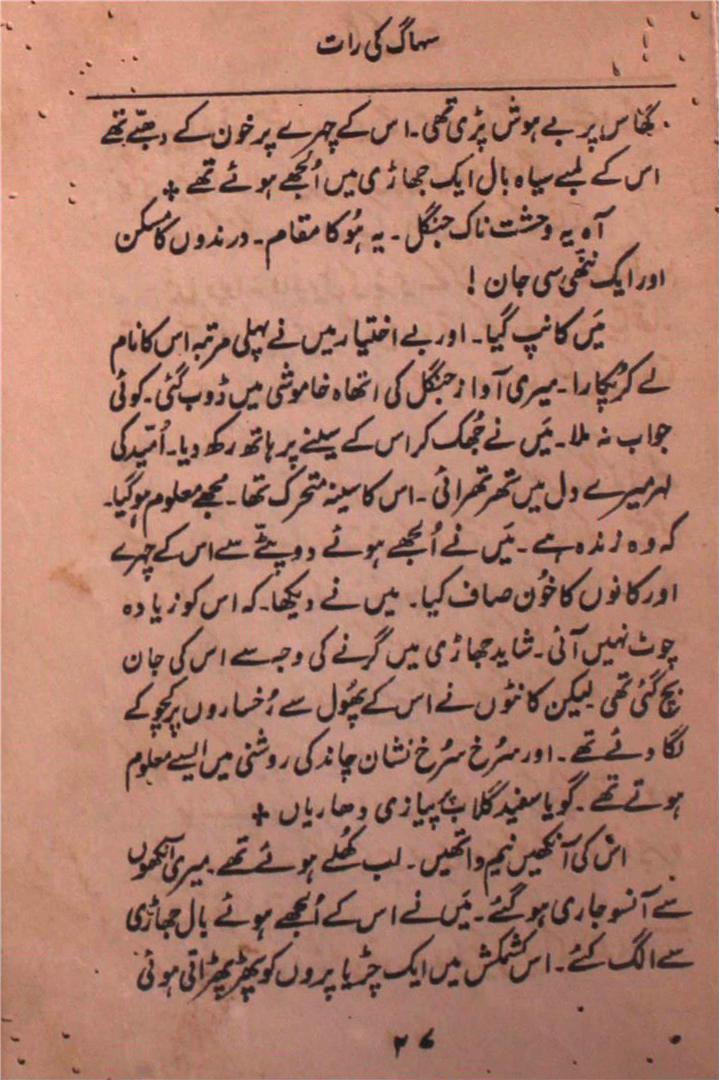 سہاگ کی رات
گھاس پر بے ہوش پڑی تھی۔ اس کے چہرے پر خون کے دھبّے تھے
اس کے لمبے سیاہ بال ایک جھاڑی میں اُلجھے ہوئے تھے +
آہ یہ وحشت ناک جنگل۔ یہ ہُو کا مقام۔ درندوں کا مسکن
اور ایک ننھّی سی جان !
مَیں کانپ گیا۔ اور بے اختیار میں نے پہلی مرتبہ اس کا نام
لے کر پُکارا۔ میری آواز جنگل کی اتھاہ خاموشی میں ڈوب گئی۔ کوئی
جواب نہ ملا۔ مَیں نے جُھک کر اس کے سینے پر ہاتھ رکھ دیا۔ اُمّید کی
لہر میرے دل میں تھرتھرائی۔ اس کا سینہ متحرک تھا۔ مجھے معلوم ہو گیا۔
کہ وہ زندہ ہے۔ مَیں نے اُلجھے ہوئے دوپٹّے سے اس کے چہرے
اور کانوں کا خُون صاف کیا۔ میں نے دیکھا۔ کہ اس کو زیادہ
چوٹ نہیں آئی۔ شاید جھاڑی میں گرنے کی وجہ سے اس کی جان
بچ گئی تھی لیکن کانٹوں نے اس کے پھُول سے رُخساروں پر کچوکے
لگا دئے تھے۔ اور سرُخ سرُخ نشان چاند کی روشنی میں ایسے معلوم
ہوتے تھے۔ گویا سفید گلاب پر پیازی دھاریاں +
اس کی آنکھیں نیم وا تھیں۔ لب کھُلے ہوئے تھے۔ میری آنکھوں
سے آنسو جاری ہو گئے۔ مَیں نے اس کے اُلجھے ہوئے بال جھاڑی
سے الگ کئے۔ اس کشمکش میں ایک چڑیا پروں کو پھڑپھڑاتی ہوئی
۲۶